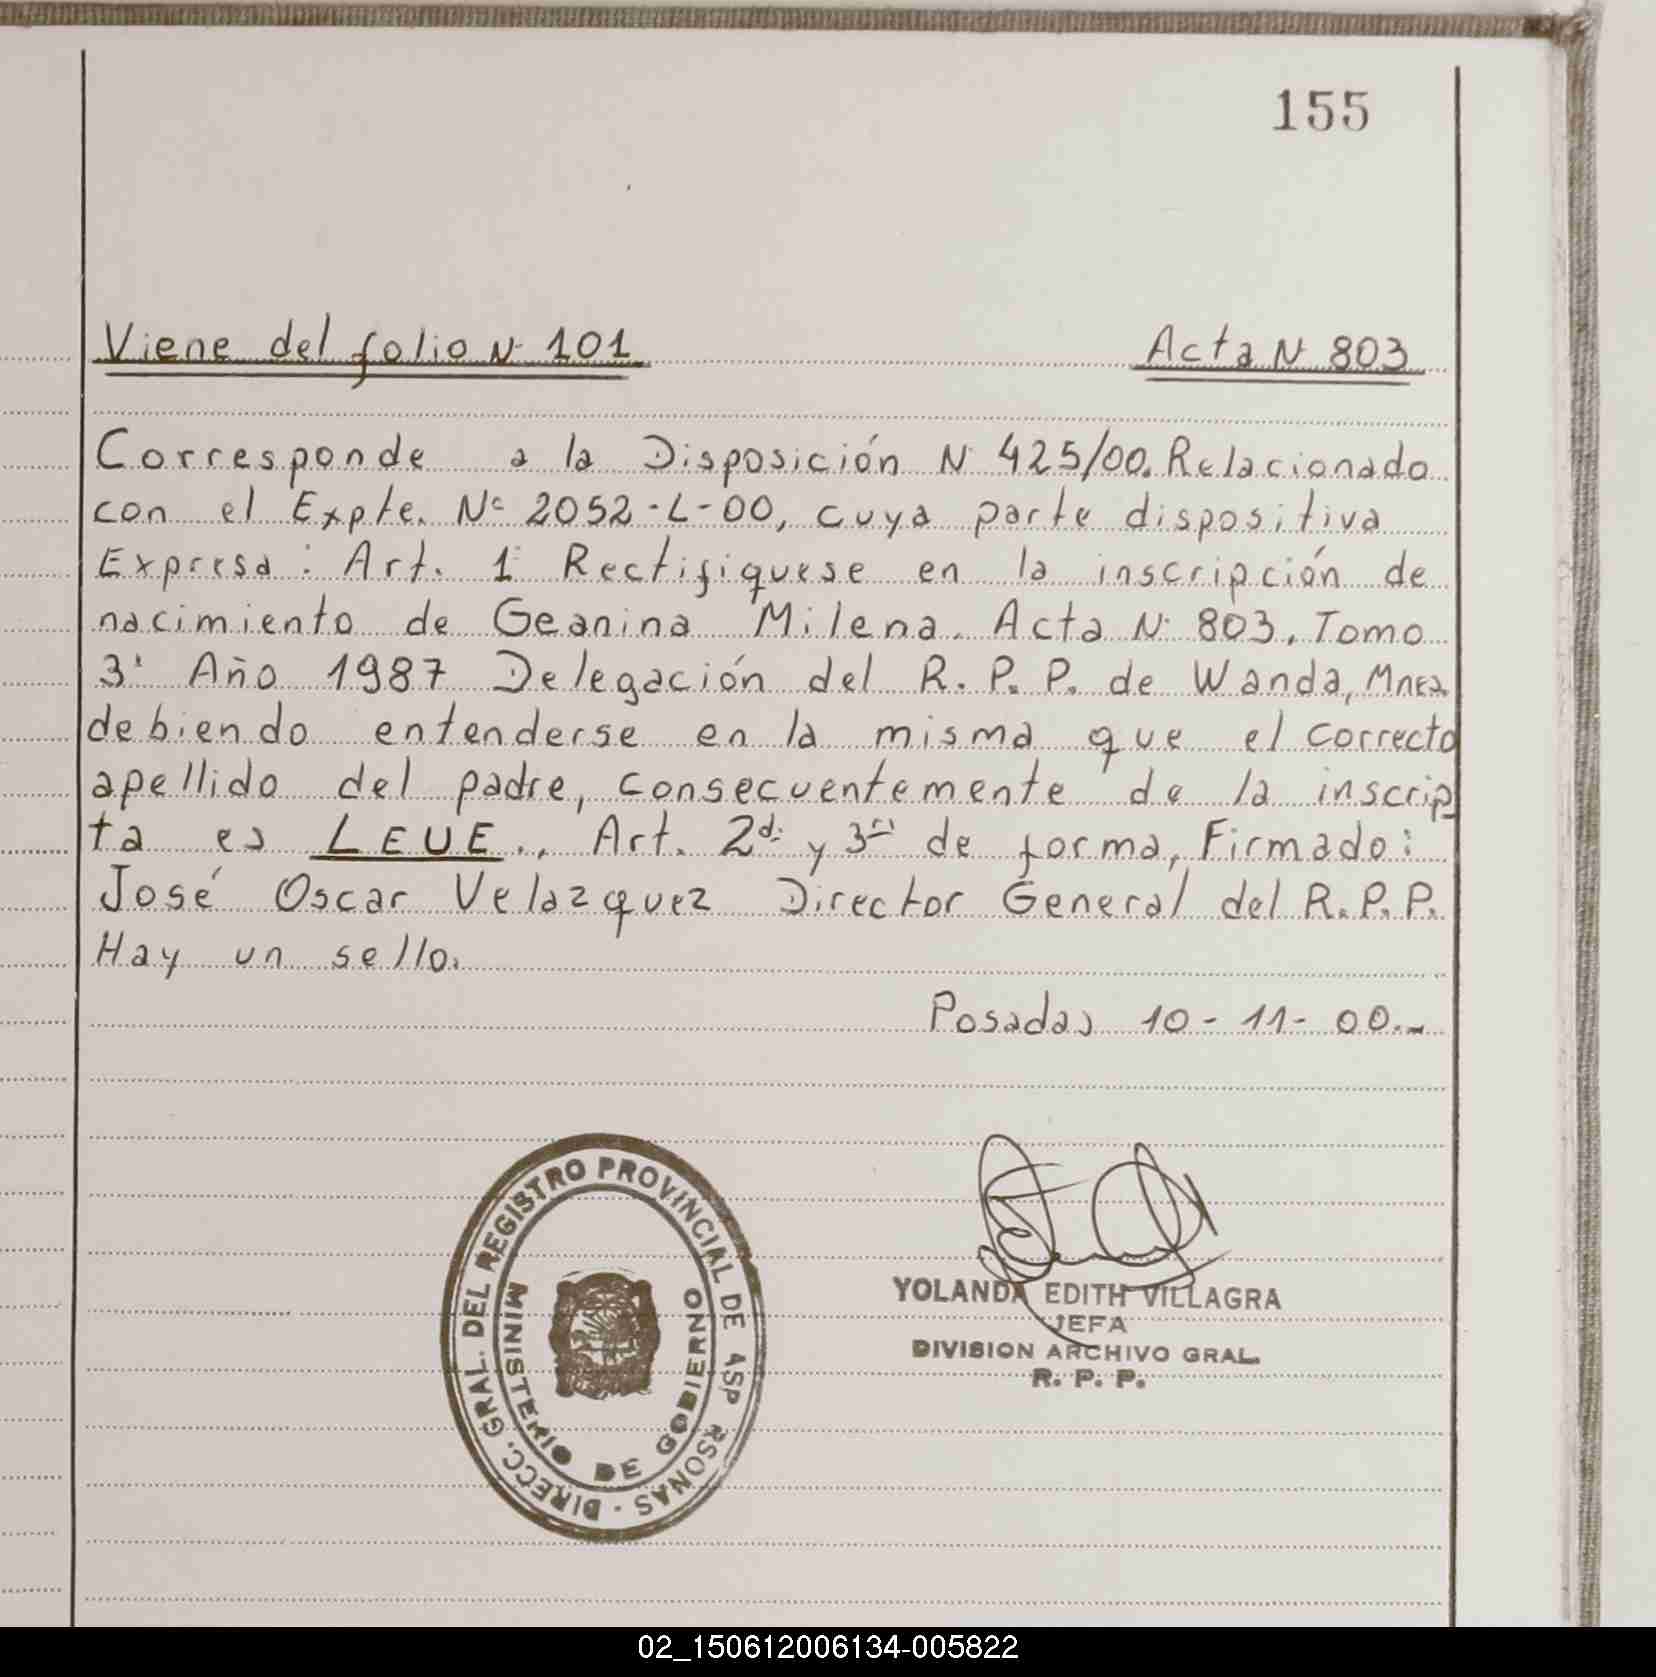 155
Viene del folio Nº 101 Acta Nº 803
Corresponde a la Disposición Nº 425/00. Relacionado
con el Expte. Nº 2052-L-00, cuya parte dispositiva
Expresa: Art. 1º Rectifiquese en la inscripción de
nacimiento de Geanina Milena. Acta Nº 803. Tomo
3º Año 1987 Delegación del R. P. P. de Wanda, Mnes.
debiendo entenderse en la misma que el correcto
apellido del padre, consecuentemente de la inscrip
ta es LEUE., Art. 2do y 3ro de forma, Firmado:
José Oscar Velazquez Director General del R. P. P.
Hay un sello.
Posadas 10-11-00.-
DIRECC. GRAL. DEL REGISTRO PROVINCIAL DE
RSONAS
MINISTERIO DE GOBIERNO
YOLANDA EDITH VILLAGRA
JEFA
DIVISION ARCHIVO GRAL.
R. P. P.
02_150612006134-005822